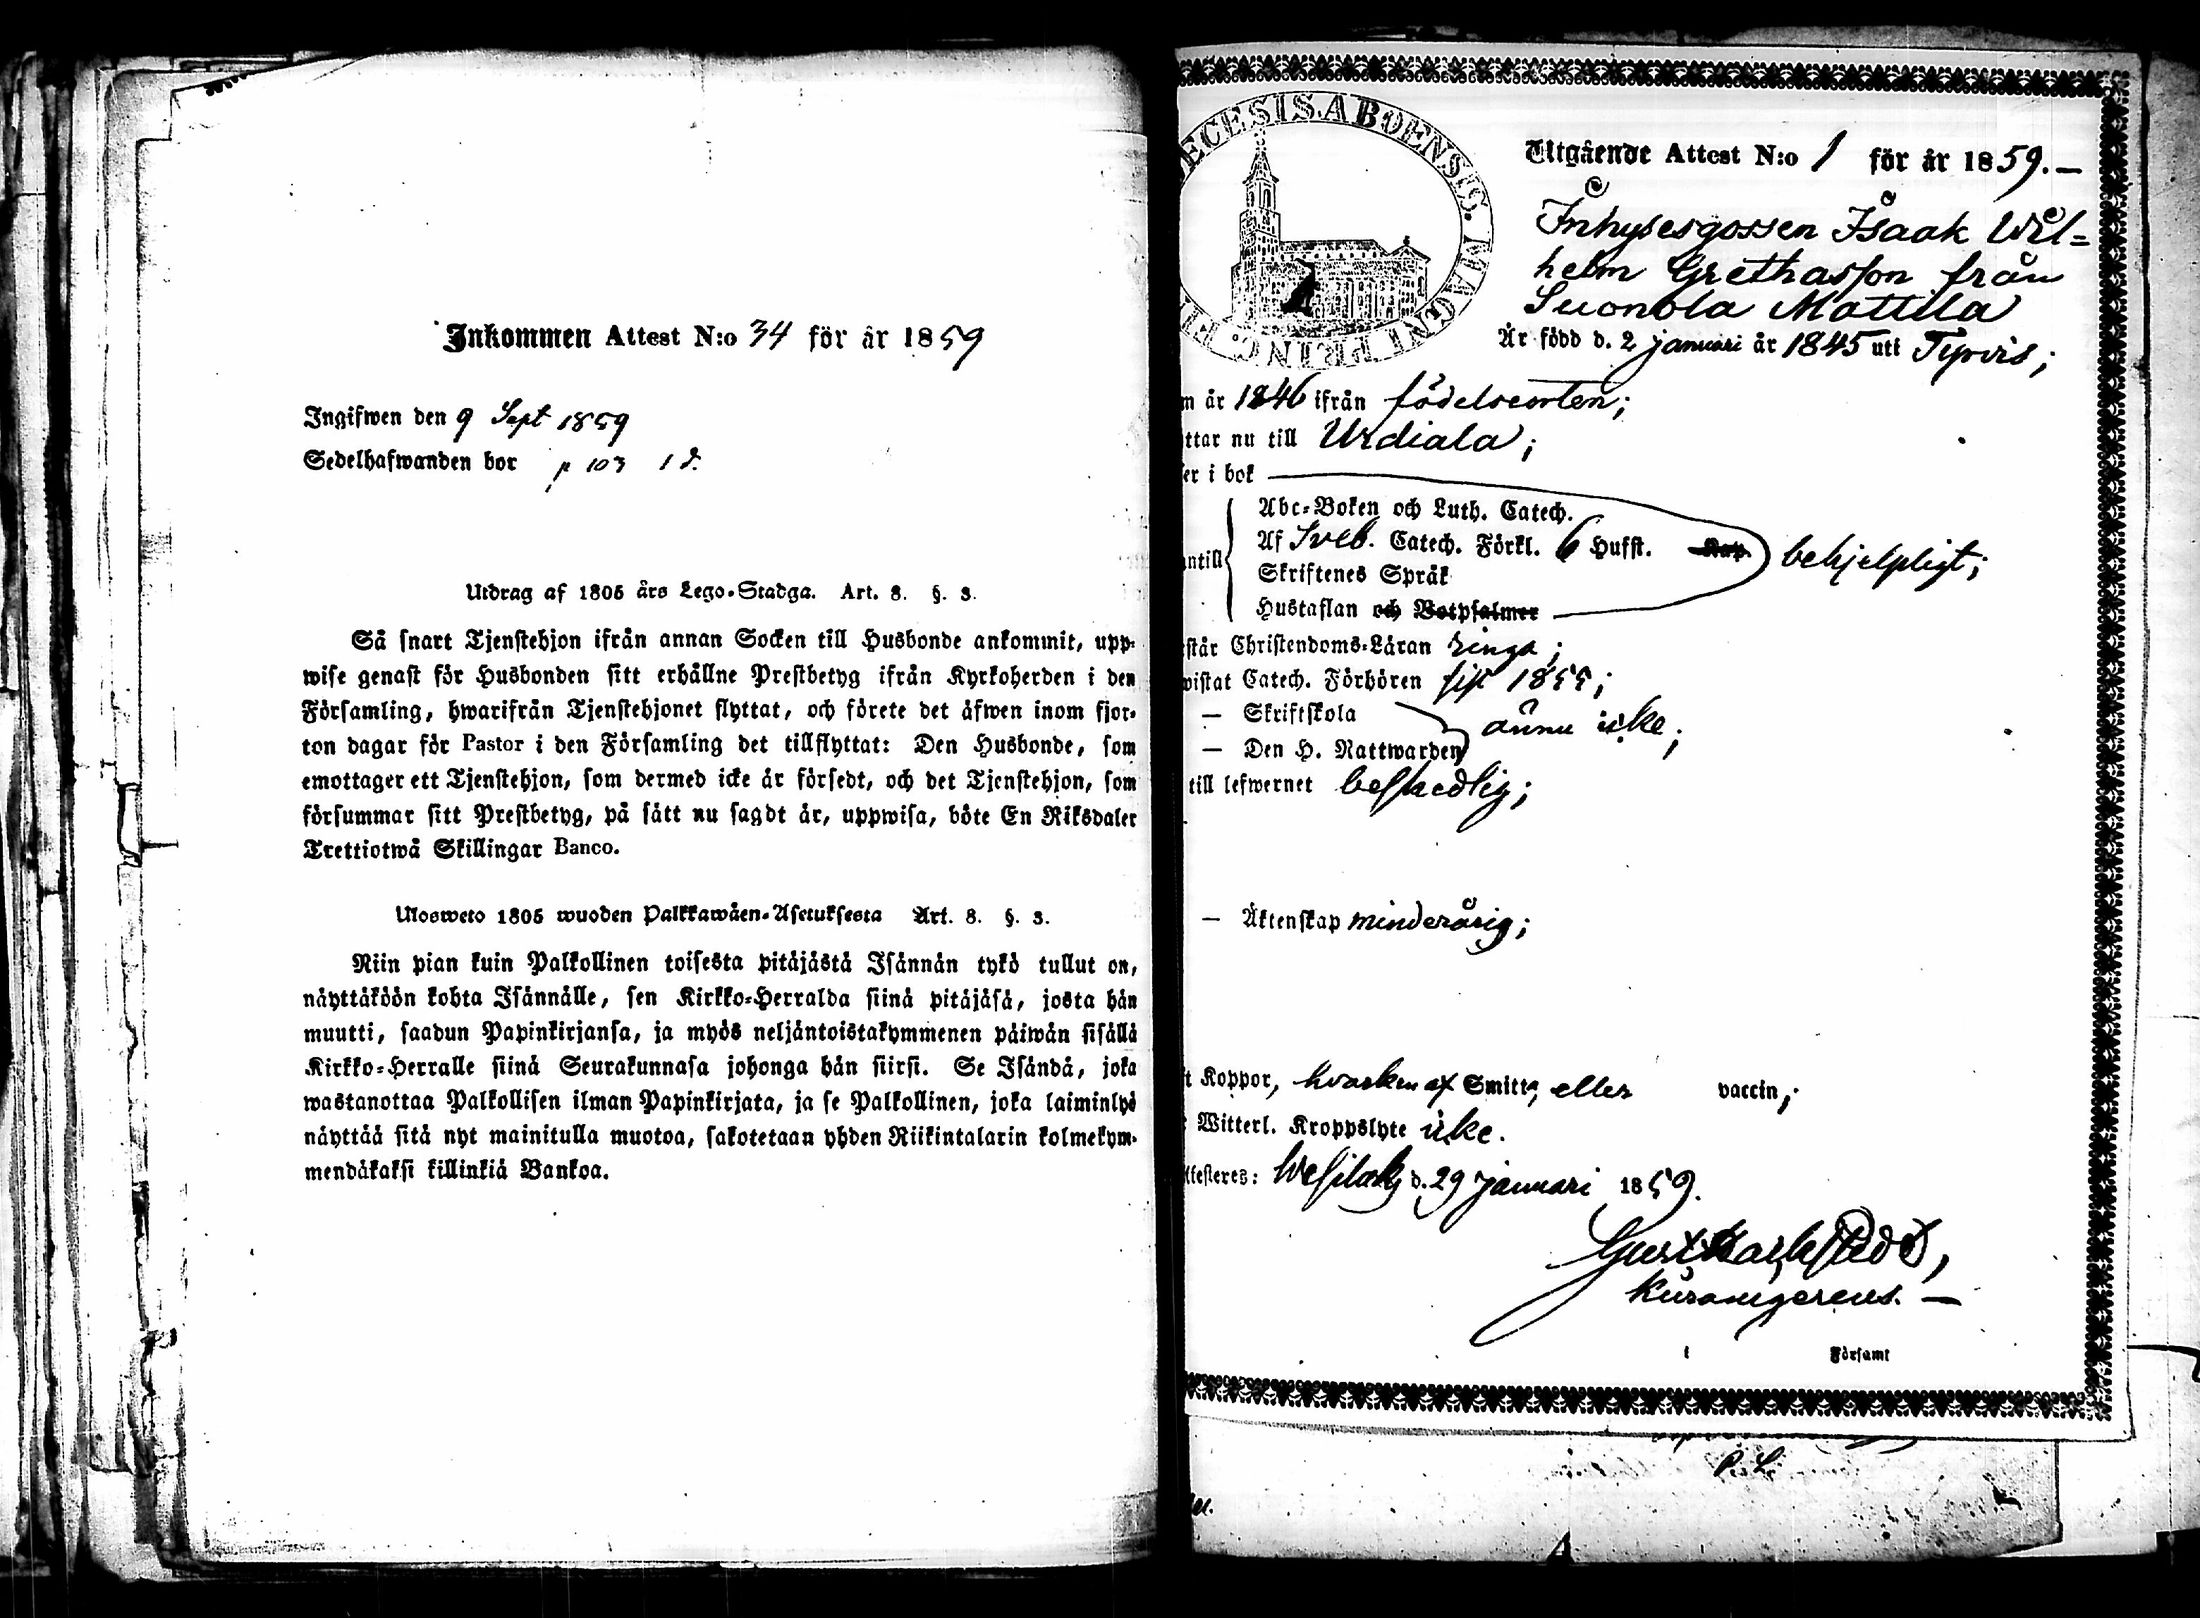 Inkommen Attest N:o 34 för år 1859
Ingifwen den 9 Sept 1859
Sedelhafwanden bor p 103 1 d.
Utdrag af 1805 års Lego-Stadga. Art. 8. §. 3.
Så snart Tjenstehjon ifrån annan Socken till Husbonde ankommit, upp-
wise genast för Husbonden sitt erhållne Prestbetyg ifrån Kyrkoherden i den
Församling, hwarifrån Tjenstehjonet flyttat, och förete det äfwen inom fjor-
ton dagar för Pastor i den Församling det tillflyttat: Den Husbonde, som
emottager ett Tjenstehjon, som dermed icke är försedt, och det Tjenstehjon, som
försummar sitt Prestbetyg, på sätt nu sagdt är, uppwisa, böte En Riksdaler
Trettiotwå Skillingar Banco.
Ulosweto 1805 wuoden Palkkawäen-Asetuksesta Art. 8. §. 3.
Niin pian kuin Palkollinen toisesta pitäjästä Isännän tykö tullut on,
näyttäköön kohta Isännälle, sen Kirkko-Herralda siinä pitäjäsä, josta hän
muutti, saadun Papinkirjansa, ja myös neljäntoistakymmenen päiwän sisällä
Kirkko-Herralle siinä Seurakunnasa johonga hän siirsi. Se Isändä, joka
wastanottaa Palkollisen ilman Papinkirjata, ja se Palkollinen, joka laiminlyö
näyttää sitä nyt mainitulla muotoa, sakotetaan yhden Riikintalarin kolmekym-
mendäkaksi killinkiä Bankoa.
ECESIS. ABOENSIS. MAGNI. PRINC.
Utgående Attest N:o 1 för år 1859.—
Inhysesgossen Isaak Wil=
helm Grethasson från
Suonola Mattila
Är född d. 2 januari år 1845 uti Tyrvis;
m år 1846 ifrån födelseorten;
ttar nu till Urdiala;
er i bok
Abc-Boken och Luth. Catech.
Af Sveb. Catech. Förkl. 6 Hufst. Kap. behjelpligt;
antill
Skriftenes Språk
Hustaflan och Botpsalmer
står Christendoms-Läran ringa;
wistat Catech. Förhören sist 1855;
— Skriftskola
ännu icke;
— Den H. Nattwarden
till lefwernet beskedlig;
— Äktenskap minderårig;
t Koppor, hvarken af Smitta, eller vaccin;
Witterl. Kroppslyte icke.
ttesteres: Wesilaks d. 29 januari 1859.
Kuramgerens. —
i Församl